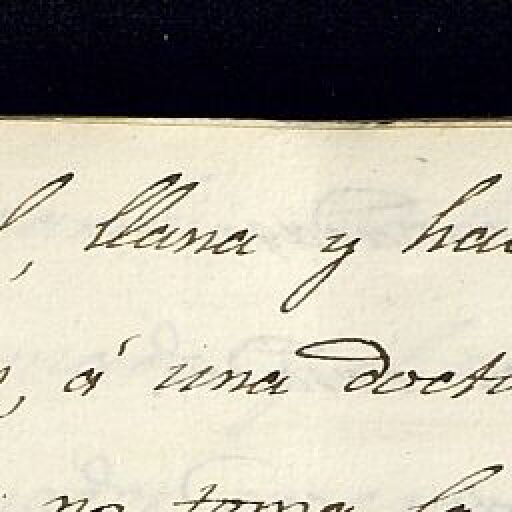 l, llana y hau
, á una docto
no toma la